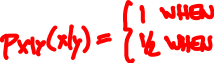 p_{X|Y}(x|y) = { 1 WHEN
½ WHEN